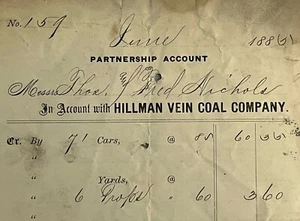 No. 159
June 188
PARTNERSHIP ACCOUNT
Messrs Thos. & Fred Nichols
In Account with HILLMAN VEIN COAL COMPANY.
Cr. By 71 Cars, @ 85 60 35
" Yards,
" 6 Props " 60 3 60
"